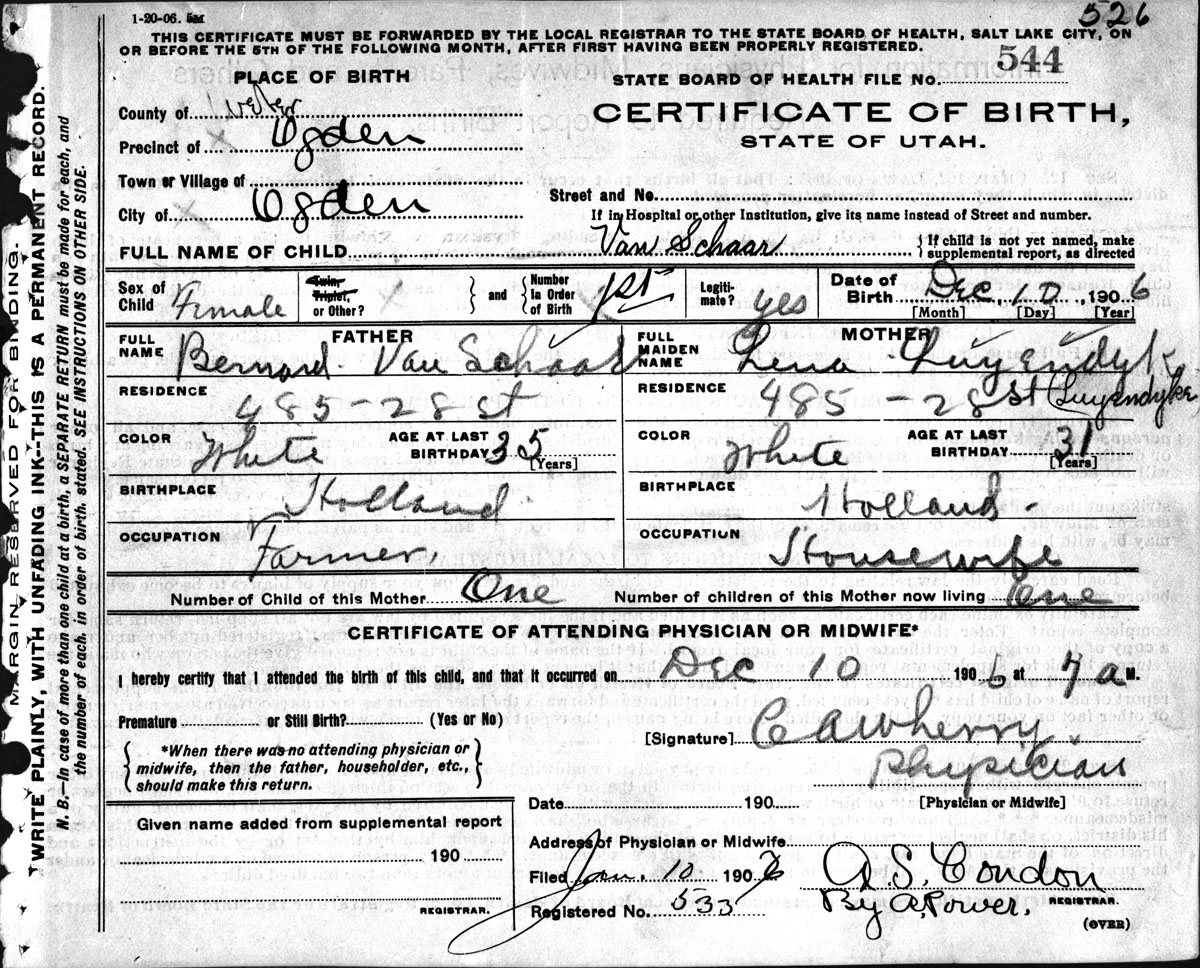 1-20-06. 5M
526
THIS CERTIFICATE MUST BE FORWARDED BY THE LOCAL REGISTRAR TO THE STATE BOARD OF HEALTH, SALT LAKE CITY, ON
OR BEFORE THE 5TH OF THE FOLLOWING MONTH, AFTER FIRST HAVING BEEN PROPERLY REGISTERED.
PLACE OF BIRTH
STATE BOARD OF HEALTH FILE NO. 544
County of Weber
CERTIFICATE OF BIRTH,
STATE OF UTAH.
Precinct of Ogden
Town or Village of
City of Ogden
Street and No.
If in Hospital or other Institution, give its name instead of Street and number.
FULL NAME OF CHILD Van Schaar
If child is not yet named, make
supplemental report, as directed
Sex of Child Female
Twin, Triplet, or Other?
and
Number in Order of Birth 1st
Legiti-mate? yes
Date of Birth Dec, 10, 1906
[Month] [Day] [Year]
FATHER
FULL NAME Bernard Van Schaar
RESIDENCE 485-28 St
COLOR White
AGE AT LAST BIRTHDAY 35 [Years]
BIRTHPLACE Holland
OCCUPATION Farmer
MOTHER
FULL MAIDEN NAME Lena Luyendyk
RESIDENCE 485-28 St Luyendyke
COLOR White
AGE AT LAST BIRTHDAY 31 [Years]
BIRTHPLACE Holland
OCCUPATION Housewife
Number of Child of this Mother One
Number of children of this Mother now living One
CERTIFICATE OF ATTENDING PHYSICIAN OR MIDWIFE*
I hereby certify that I attended the birth of this child, and that it occurred on Dec 10 1906 at 7 a M.
Premature or Still Birth? (Yes or No)
*When there was no attending physician or
midwife, then the father, householder, etc.,
should make this return.
[Signature]
Physician
[Physician or Midwife]
Date 190
Given name added from supplemental report
190
REGISTRAR.
Address of Physician or Midwife
Filed Jan. 10 190
Registered No. 533
A. S. Condon
REGISTRAR.
By Power.
(OVER)
MARGIN RESERVED FOR BINDING.
WRITE PLAINLY, WITH UNFADING INK--THIS IS A PERMANENT RECORD.
N. B.--In case of more than one child at a birth, a SEPARATE RETURN must be made for each, and
the number of each, in order of birth, stated. SEE INSTRUCTIONS ON OTHER SIDE.